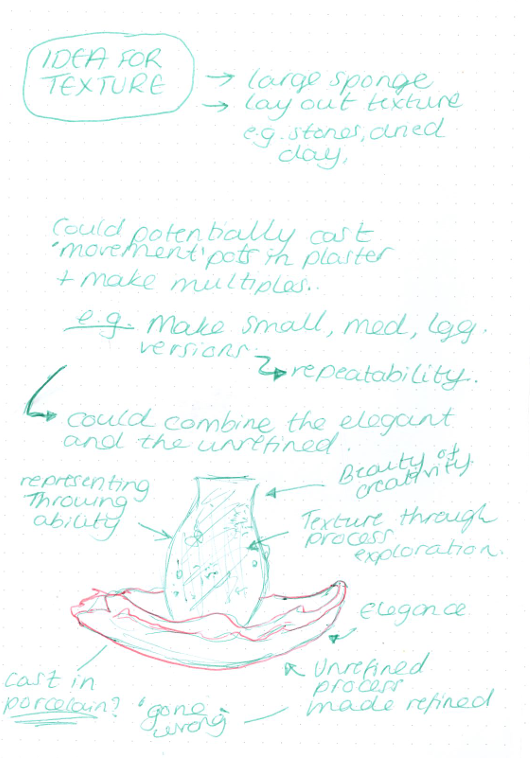 IDEA FOR
TEXTURE
→ large sponge
→ lay out texture
e.g. stones, dried
clay,
Could potentially cast
'movement' pots in plaster
+ make multiples..
e.g. Make small, med, lgg.
versions.
→ repeatability.
→ could combine the elegant
and the unrefined.
Beauty of
creativity.
representing
Throwing
ability
Texture through
process
exploration.
elegance
Unrefined
process
made refined
cast in
porcelain?
'gone
wrong'